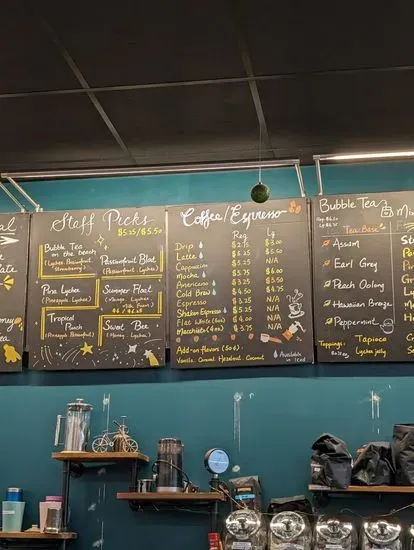 al
late
mey
Staff Picks
$5.25/$5.50
Bubble Tea
on the beach
(Lychee, Passionfruit,
Strawberry)
Passionfruit Blat
(Passionfruit, Lychee)
Pina Lychee
(Pineapple, Lychee)
Summer Float
(Mango, Lychee,
Milk, Foam)
Tropical
Punch
(Pineapple, Passionfruit)
Sweet Bee
(Honey, Lychee)
Coffee/Espresso
Reg Lg
Drip $2.75 $3.00
Latte $5.25 $5.50
Cappuccino N/A
Mocha $5.75 $6.00
Americano $3.50
Cold Brew $4.50 $4.75
Espresso N/A
Shaken Espresso N/A
Flat White N/A
Macchiato $3.75 N/A
Add-on flavors
Vanilla, Caramel, Hazelnut
Available
in Iced
Bubble Tea
Mi
Tea Base
Assam
Earl Grey
Peach Oolong
Hawaiian Breeze
Peppermint
Toppings:
Tapioca
Lychee jelly